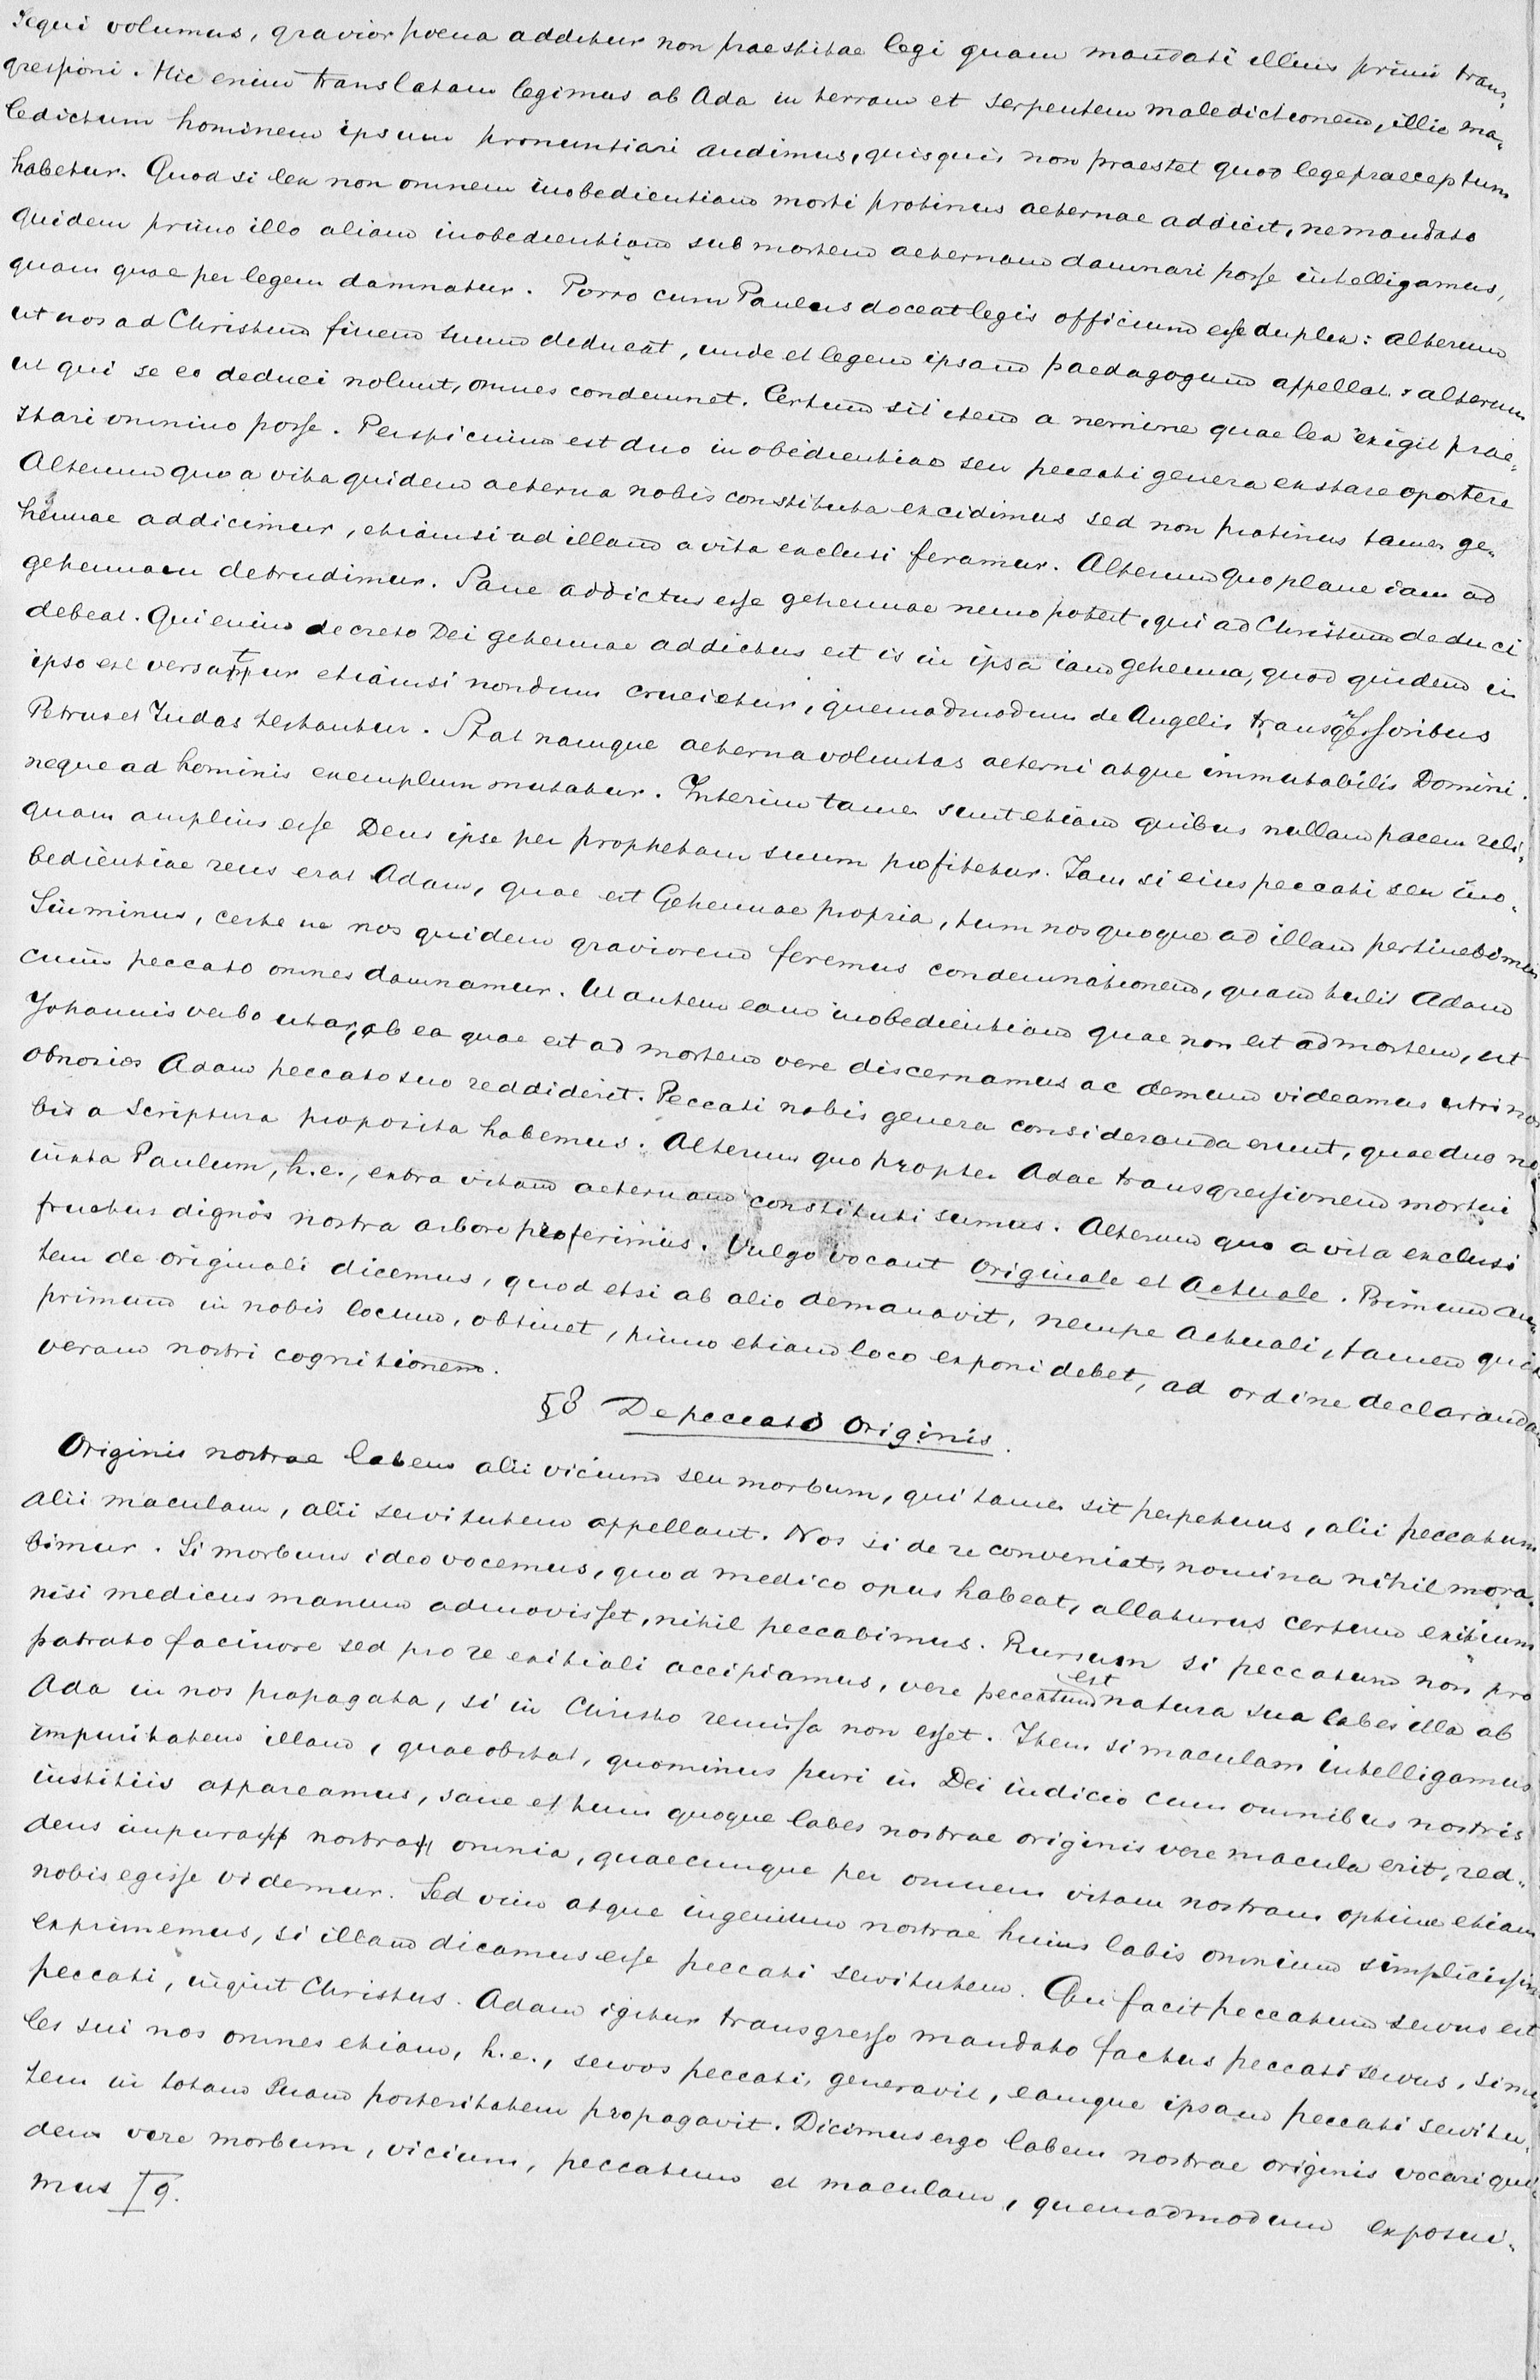 sequi volumus, gravior poena additur non praestitae legi quam mandati illius primi trans-
gressioni. Hic enim translatam legimus ab Ada in terram et serpentem maledictionem, illic ma-
ledictum hominem ipsum pronuntiari audimus, quisquis non praestet quod lege praeceptum
habetur. Quod si lex non omnem inobedientiam morti protinus aeternae addicit, ne mandato
quidem primo illo aliam inobedientiam sub mortem aeternam damnari posse intelligamus,
quam quae per legem damnatur. Porro cum Paulus doceat legis officium esse duplex: alterum
ut nos ad Christum finem suum deducat, unde et legem ipsam paedagogum appellat: alterum
ut qui se eo deduci nolunt, omnes condemnet. Certum sit item a nemine quae lex exigit prae-
stari omnino posse. Perspicuum est duo inobedientiae seu peccati genera exstare oportere
Alterum quo a vita quidem aeterna nobis constituta excidimus sed non protinus tamen ge-
hennae addicimur, etiamsi ad illam a vita exclusi feramur. Alterum quo plane iam ad
gehennam detrudimur. Sane addictus esse gehennae nemo potest, qui ad Christum deduci
debeat. Qui enim decreto Dei gehennae addictus est is in ipsa iam gehenna, quod quidem in
ipso est versatur etiamsi nondum crucietur, quemadmodum de Angelis transgressoribus
Petrus et Iudas testantur. Stat namque aeterna voluntas aeterni atque immutabilis Domini.
neque ad hominis exemplum mutatur. Interim tamen sunt etiam quibus nullam pacem reli-
quam amplius esse Deus ipse per prophetam suum profitetur. Iam si eius peccati seu ino-
bedientiae reus erat Adam, quae est Gehennae propria, tum nos quoque ad illam pertinebimus
Sin minus, certe ne nos quidem graviorem feremus condemnationem, quam tulit Adam
cuius peccato omnes damnamur. Ut autem eam inobedientiam quae non est ad mortem, ut
Johannis verbo utar, ab ea quae est ad mortem vere discernamus ac demum videamus utri nos
obnoxios Adam peccato suo reddiderit. Peccati nobis genera consideranda erunt, quae duo no-
bis a Scriptura proposita habemus. Alterum quo propter Adae transgressionem mortui
iuxta Paulum, h.e., extra vitam aeternam constituti sumus. Alterum quo a vita exclusi
fructus dignos nostra arbore proferimus. Vulgo vocant Originale et Actuale. Primum au-
tem de originali dicemus, quod etsi ab alio demanavit, nempe Actuali, tamen quia
primum in nobis locum, obtinet, primo etiam loco exponi debet, ad ordine declarandam
veram nostri cognitionem.
§8 De peccato Originis.
Originis nostrae labem alii vicium seu morbum, qui tamen sit perpetuus, alii peccatum
alii maculam, alii servitutem appellant. Nos si de re conveniat, nomina nihil mora-
bimur. Si morbum ideo vocemus, quod medico opus habeat, allaturus certum exitium
nisi medicus manum admovisset, nihil peccabimus. Rursum si peccatum non pro
patrato facinore sed pro re exitiali accipiamus, vere peccatum est natura sua labes illa ab
Ada in nos propagata, si in Christo remissa non esset. Item si maculam intelligamus
impuritatem illam, quae obstat, quominus puri in Dei iudicio cum omnibus nostris
iustitiis appareamus, sane et tum quoque labes nostrae originis vere macula erit, red-
dens impura nostra omnia, quaecunque per omnem vitam nostram optime etiam
nobis egisse videmur. Sed vim atque ingenium nostrae huius labis omnium simplicissime
exprimemus, si illam dicamus esse peccati servitutem. Qui facit peccatum servus est
peccati, inquit Christus. Adam igitur transgresso mandato factus peccati servus, simi-
les sui nos omnes etiam, h.e., servos peccati, generavit, eamque ipsam peccati servitu-
tem in totam suam posteritatem propagavit. Dicimus ergo labem nostrae originis vocari qui-
dem vere morbum, vicium, peccatum et maculam, quemadmodum exposui-
mus 9.